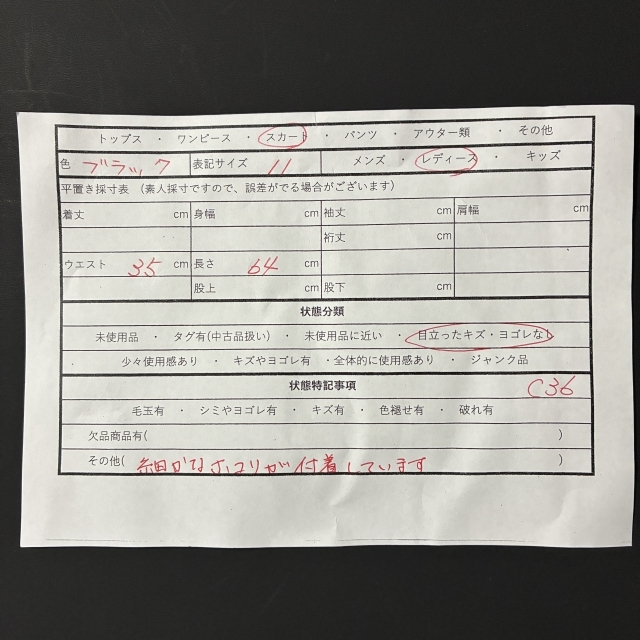 トップス ・ ワンピース ・ スカート ・ パンツ ・ アウター類 ・ その他
色 ブラック 表記サイズ 11 メンズ ・ レディース ・ キッズ
平置き採寸表 (素人採寸ですので、誤差がでる場合がございます)
着丈 cm 身幅 cm 袖丈 cm 肩幅 cm
裄丈 cm
ウエスト 35 cm 長さ 64 cm cm
股上 cm 股下 cm
状態分類
未使用品 ・ タグ有(中古品扱い) ・ 未使用品に近い ・ 目立ったキズ・ヨゴレなし
少々使用感あり ・ キズやヨゴレ有 ・全体的に使用感あり ・ ジャンク品
状態特記事項 C36
毛玉有 ・ シミやヨゴレ有 ・ キズ有 ・ 色褪せ有 ・ 破れ有
欠品商品有( )
その他( 細かなホコリが付着しています )